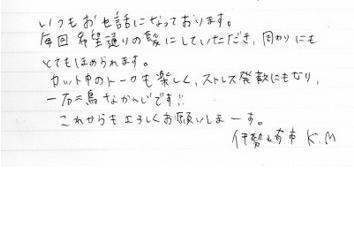 いつもお世話になっております。
毎回希望通りの髪にしていただき、周かりにも
とてもほめられます。
カット中のトークも楽しく、ストレス発散にもなり、
一石二鳥なかんじです!!
これからもよろしくお願いしまーす。
伊勢崎市 K.M